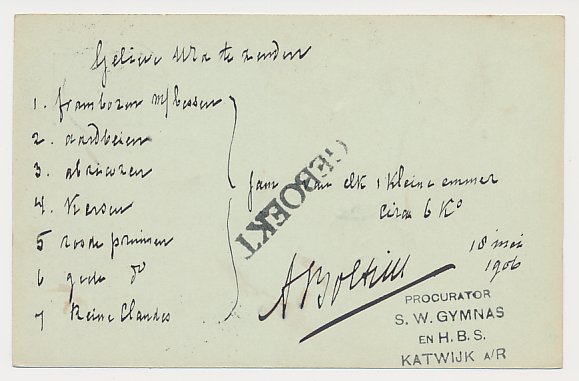 Gelieve mij te zenden
1. frambozen m/bessen
2. aardbeien
3. abricozen
4. Kersen
5 roode pruimen
6 gele do
7 Reine Claudes
Jam van elk 1 kleine emmer
circa 6 Ko
GEBOEKT
18 mei
1906
PROCURATOR
S. W. GYMNAS
EN H. B. S.
KATWIJK A/R